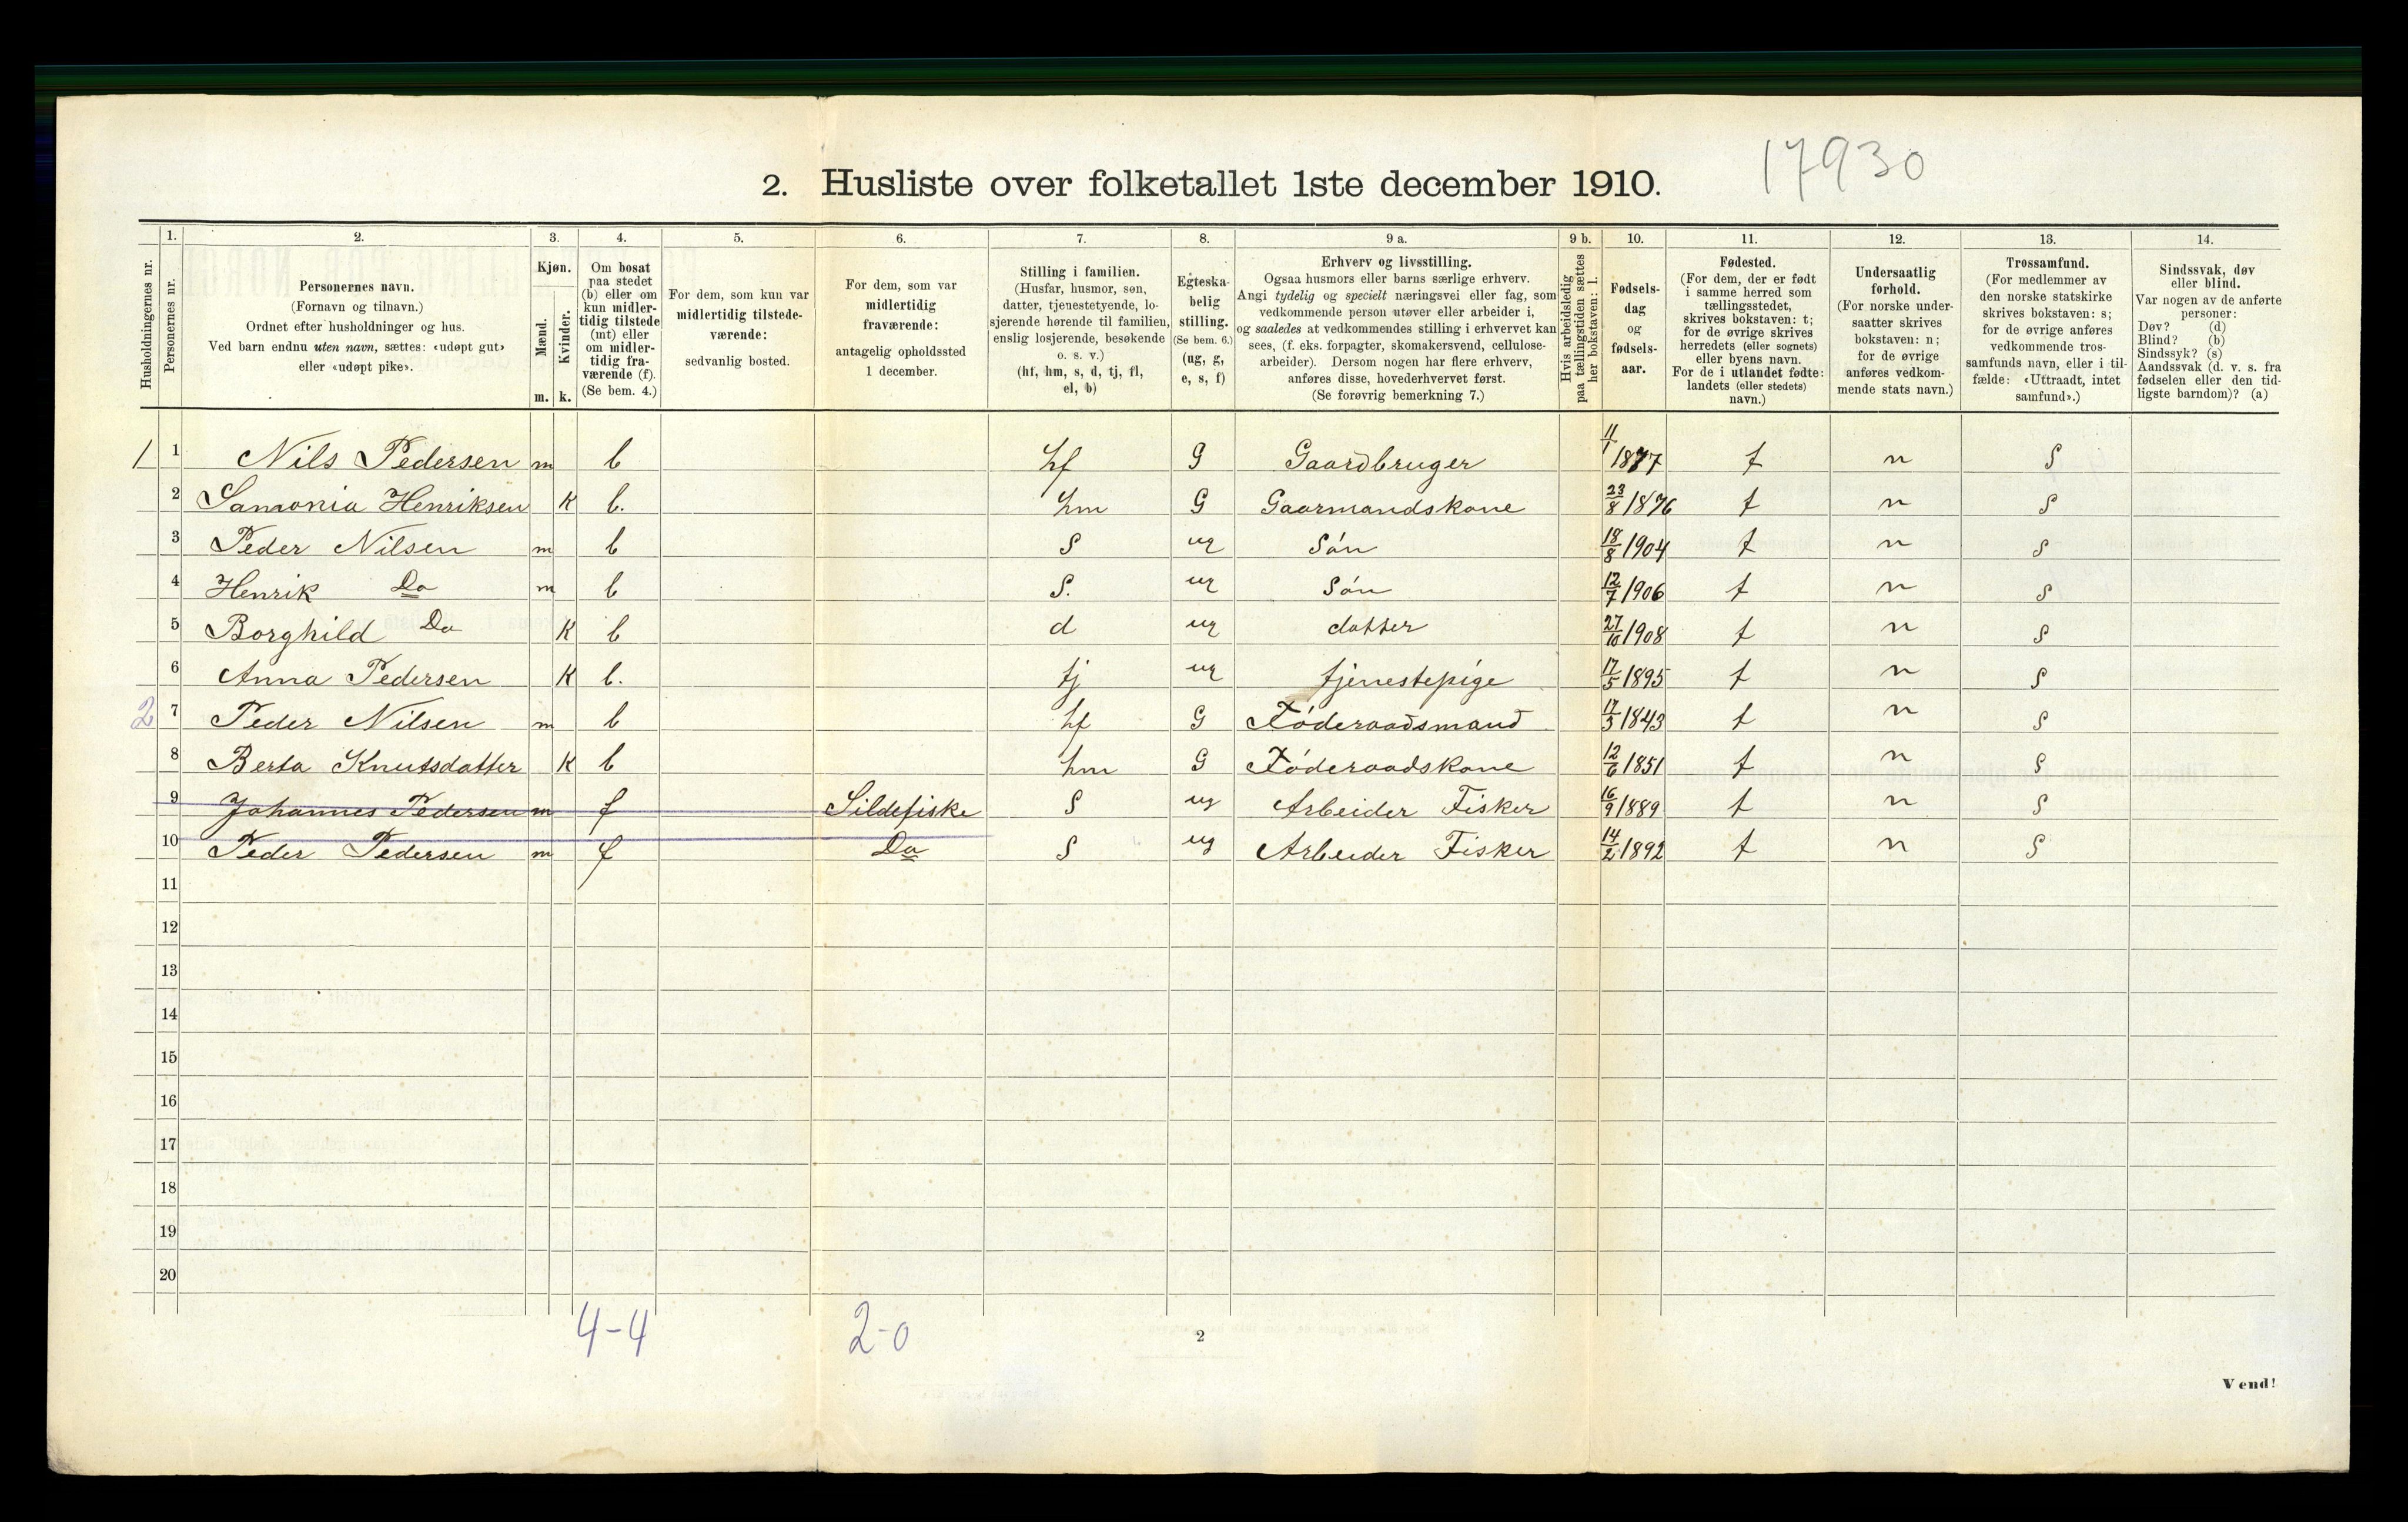 17930
2. Husliste over folketallet 1ste december 1910.
Husholdningernes nr.
1.
Personernes nr.
2.
Personernes navn.
(Fornavn og tilnavn.)
Ordnet efter husholdninger og hus.
Ved barn endnu uten navn, sættes: «udøpt gut»
eller «udøpt pike».
3.
Kjøn.
Mænd.
Kvinder.
m. k.
4.
Om bosat
paa stedet
(b) eller om
kun midler-
tidig tilstede
(mt) eller
om midler-
tidig fra-
værende (f).
(Se bem. 4.)
5.
For dem, som kun var
midlertidig tilstede-
værende:
sedvanlig bosted.
6.
For dem, som var
midlertidig
fraværende:
antagelig opholdssted
1 december.
7.
Stilling i familien.
(Husfar, husmor, søn,
datter, tjenestetyende, lo-
sjerende hørende til familien,
enslig losjerende, besøkende
o. s. v.)
(hf, hm, s, d, tj, fl,
el, b)
8.
Egteska-
belig
stilling.
(Se bem. 6.)
(ug, g,
e, s, f)
9 a.
Erhverv og livsstilling.
Ogsaa husmors eller barns særlige erhverv.
Angi tydelig og specielt næringsvei eller fag, som
vedkommende person utøver eller arbeider i,
og saaledes at vedkommendes stilling i erhvervet kan
sees, (f. eks. forpagter, skomakersvend, cellulose-
arbeider). Dersom nogen har flere erhverv,
anføres disse, hovederhvervet først.
(Se forøvrig bemerkning 7.)
9 b.
Hvis arbeidsledig
paa tællingstiden sættes
her bokstaven: l.
10.
Fødsels-
dag
og
fødsels-
aar.
11.
Fødested.
(For dem, der er født
i samme herred som
tællingsstedet,
skrives bokstaven: t;
for de øvrige skrives
herredets (eller sognets)
eller byens navn.
For de i utlandet fødte:
landets (eller stedets)
navn.)
12.
Undersaatlig
forhold.
(For norske under-
saatter skrives
bokstaven: n;
for de øvrige
anføres vedkom-
mende stats navn.)
13.
Trossamfund.
(For medlemmer av
den norske statskirke
skrives bokstaven: s;
for de øvrige anføres
vedkommende tros-
samfunds navn, eller i til-
fælde: «Uttraadt, intet
samfund».)
14.
Sindssvak, døv
eller blind.
Var nogen av de anførte
personer:
Døv? (d)
Blind? (b)
Sindssyk? (s)
Aandssvak (d. v. s. fra
fødselen eller den tid-
ligste barndom)? (a)
1 1 Nils Pedersen m b hf G Gaardbruger 11/1 1877 t n S
2 Samonia Henriksen K b. hm G Gaarmandskone 23/8 1876 t n S
3 Peder Nilsen m b S ug Són 18/8 1904 t n S
4 Henrik Do m b S. ug Són 12/7 1906 t n S
5 Borghild Do K b d ug datter 27/10 1908 t n S
6 Anna Pedersen K b. tj ug tjenestepige 17/5 1895 t n S
2 7 Peder Nilsen m b hf G Fóderaadsmand 17/3 1843 t n S
8 Berta Knutsdatter K b hm G Fóderaadskone 12/6 1851 t n S
9 Johannes Pedersen m f Sildefiske S ug Arbeider Fisker 16/9 1889 t n S
10 Peder Pedersen m f Do S ug Arbeider Fisker 14/2 1892 t n S
11
12
13
14
15
16
17
18
19
20
4-4 2-0
2
Vend!